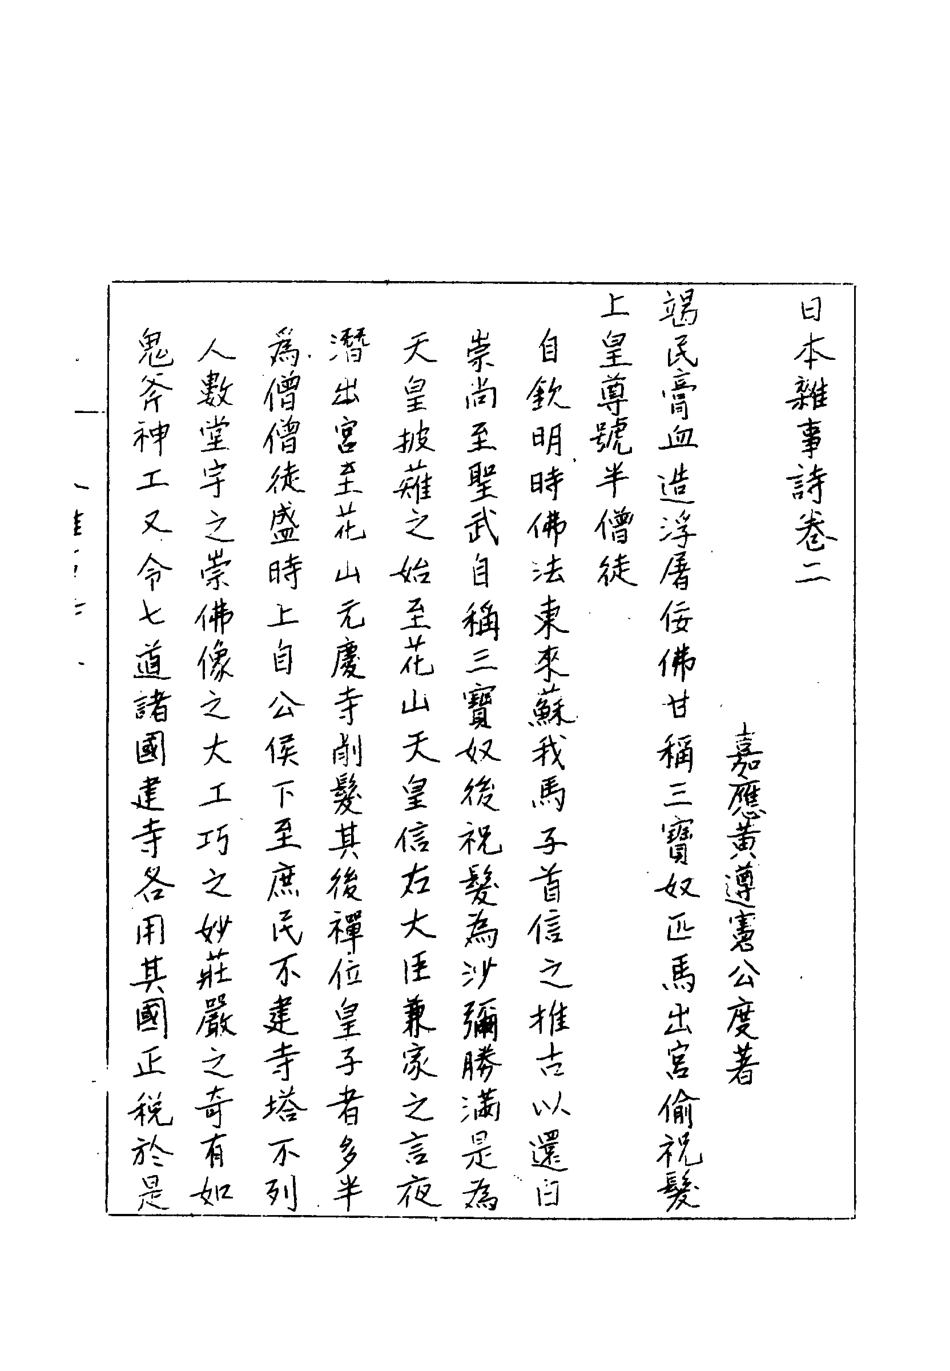 日本雜事詩卷二
嘉應黃遵憲公度著
竭民膏血造浮屠佞佛甘稱三寶奴匹馬出宮偷祝髮
上皇尊號半僧徒
自欽明時佛法東來蘇我馬子首信之推古以還日
崇尚至聖武自稱三寶奴後祝髮為沙彌勝滿是為
天皇披薙之始至花山天皇信右大臣兼家之言夜
潛出宮至花山元慶寺削髮其後禪位皇子者多半
爲僧僧徒盛時上自公侯下至庶民不建寺塔不列
人數堂宇之崇佛像之大工巧之妙莊嚴之奇有如
鬼斧神工又令七道諸國建寺各用其國正稅於是